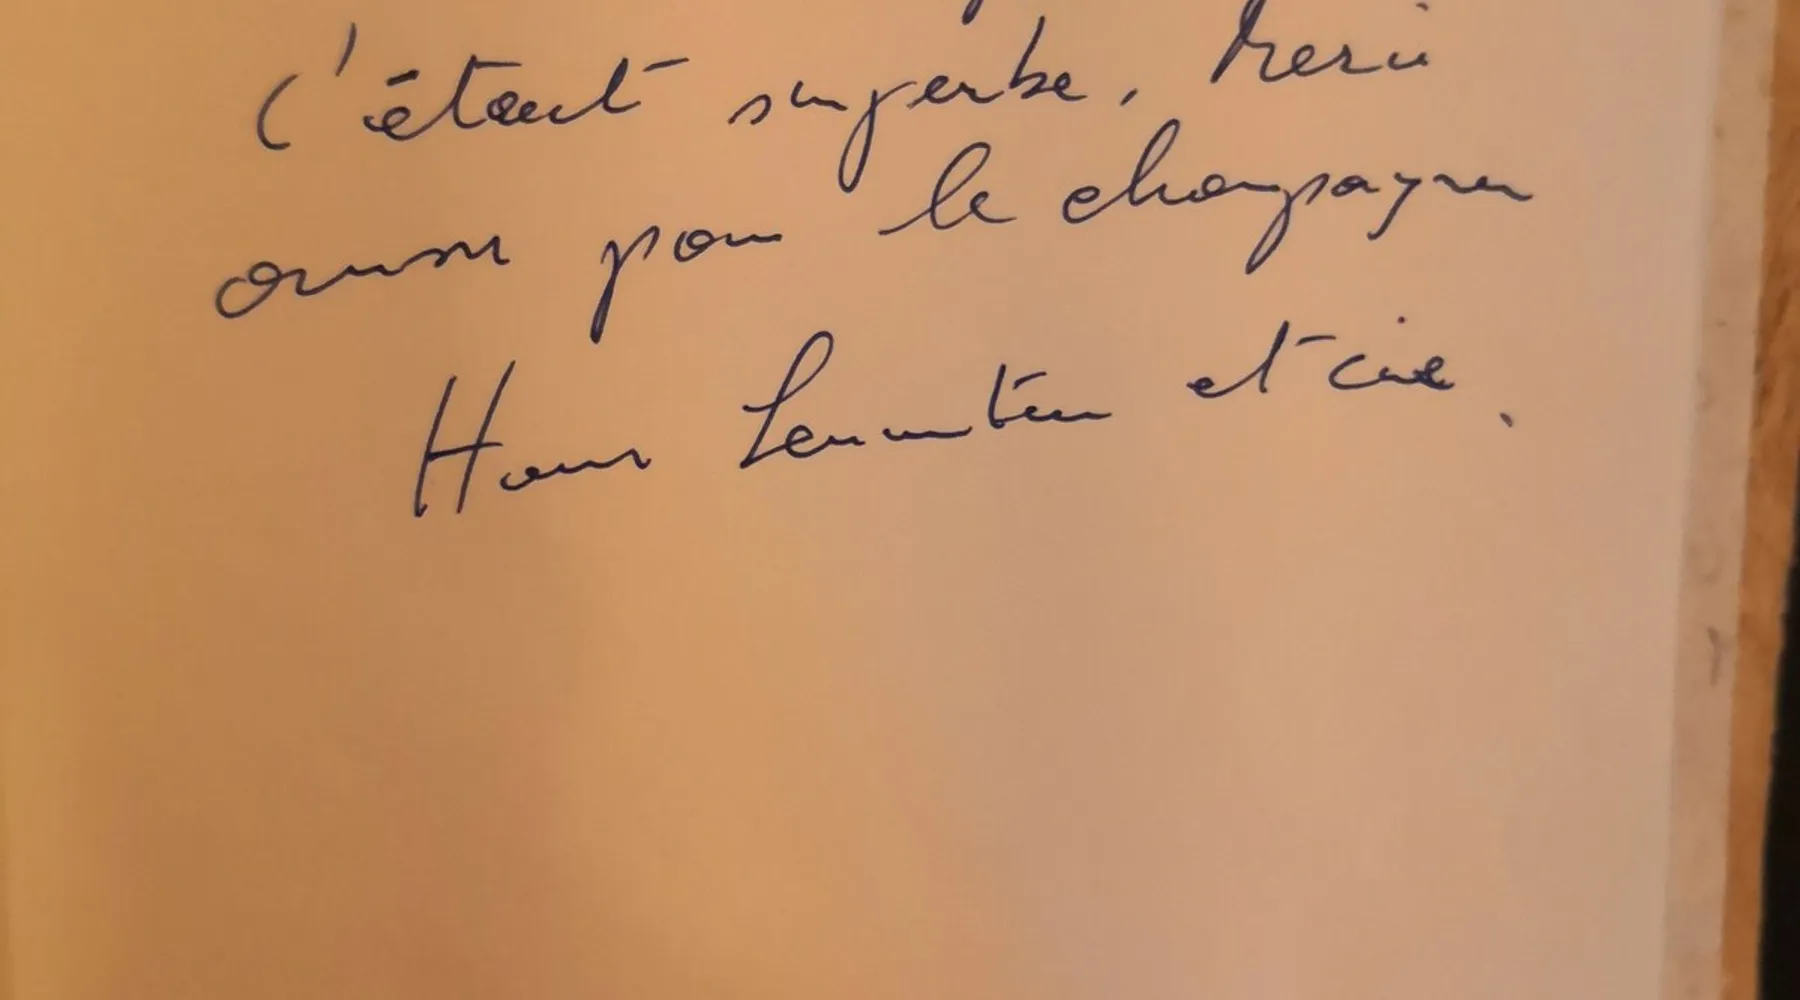 C'était superbe, Merci
aussi pour le champagne
et cie.